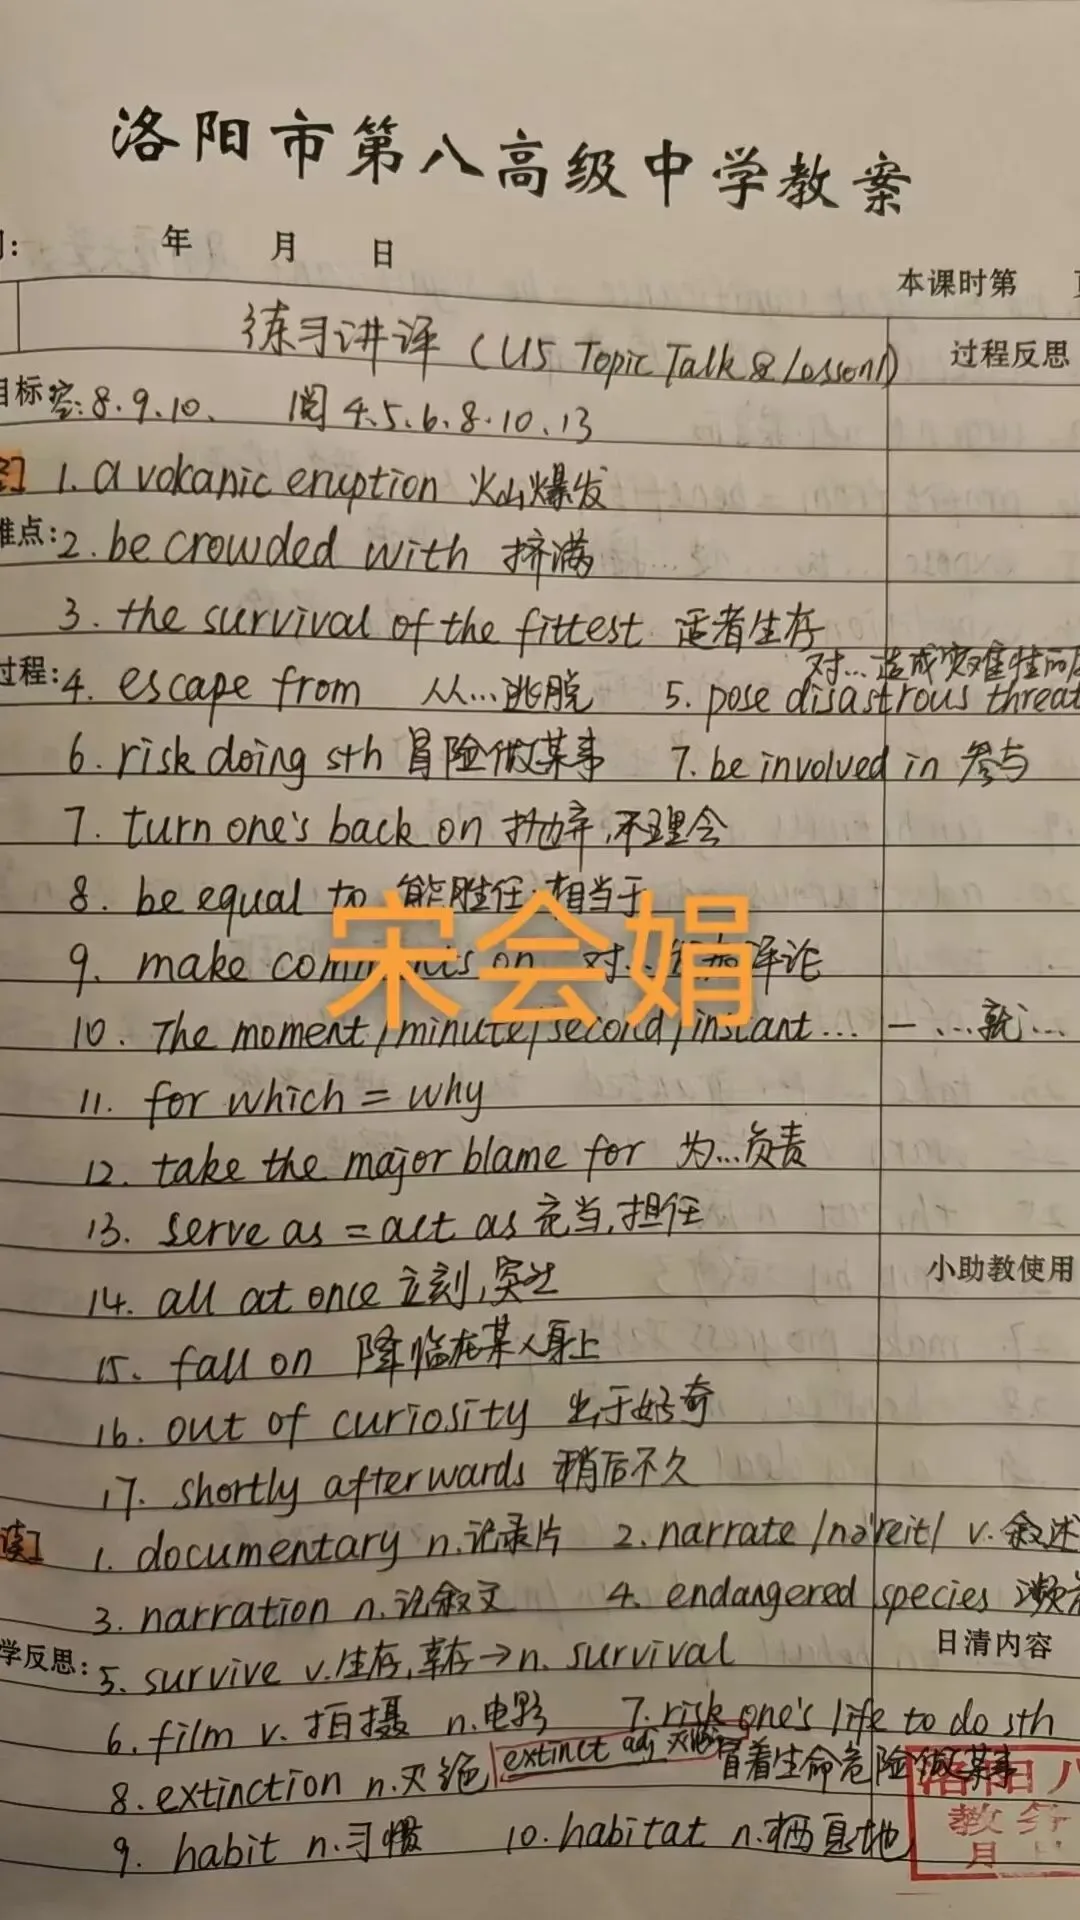 洛阳市第八高级中学教案
年 月 日
本课时第
练习讲评 (U5 Topic Talk & Lesson1)
过程反思
目标 完: 8.9.10、 阅 4.5.6.8.10.13
1. a volcanic eruption 火山爆发
难点: 2. be crowded with 挤满
3. the survival of the fittest 适者生存
对...造成灾难性的
过程: 4. escape from 从...逃脱 5. pose disastrous threat
6. risk doing sth 冒险做某事 7. be involved in 参与
7. turn one's back on 抛弃,不理会
8. be equal to 能胜任,相当于
宋会娟
9. make comments on 对... 评论
10. The moment/minute/second/instant... 一...就...
11. for which = why
12. take the major blame for 为...负责
13. serve as = act as 充当,担任
小助教使用
14. all at once 立刻,突然
15. fall on 降临在某人身上
16. out of curiosity 出于好奇
17. shortly afterwards 稍后不久
读] 1. documentary n.记录片 2. narrate /nə'reit/ v. 叙述
3. narration n.记叙文 4. endangered species 濒
学反思: 日清内容
5. survive v.生存,幸存→n. survival
6. film v. 拍摄 n.电影 7. risk one's life to do sth
冒着生命危险做某事
8. extinction n.灭绝 extinct adj 灭绝
9. habit n.习惯 10. habitat n.栖息地
洛阳八
教务
月